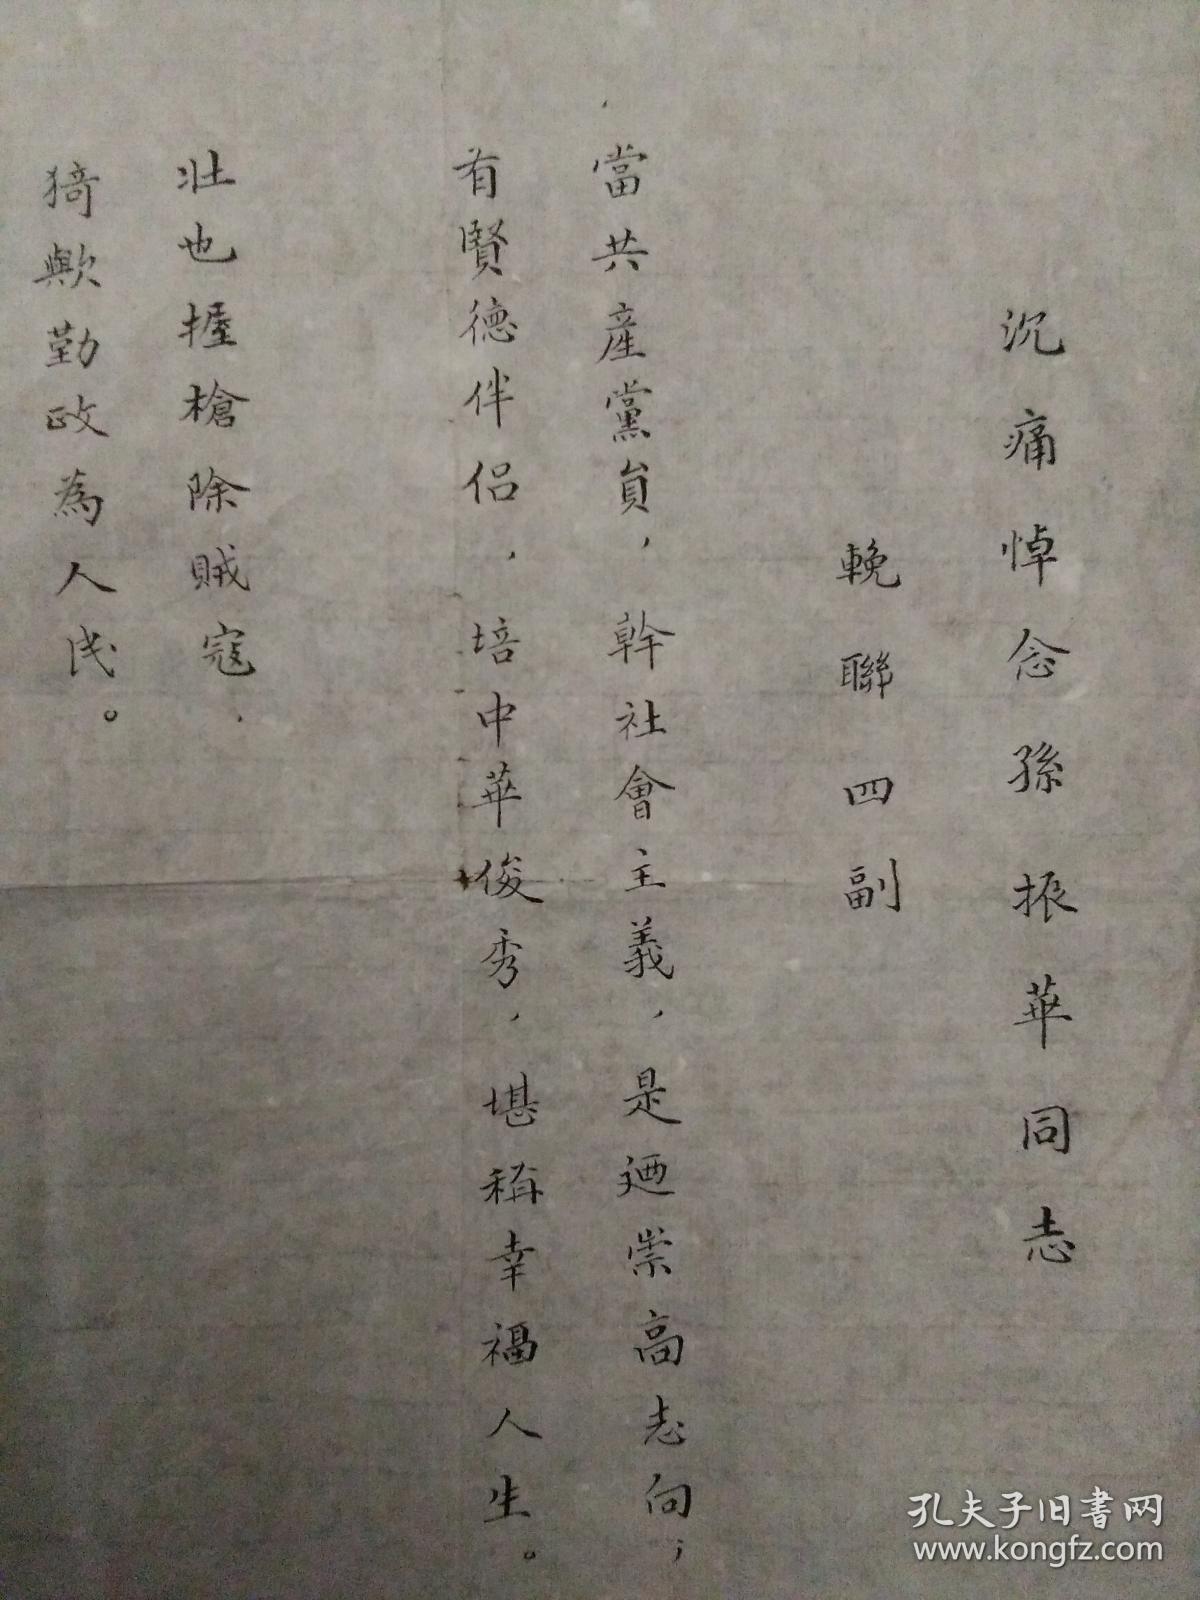 沉痛悼念孫振華同志
輓聯四副
當共産黨員，幹社會主義，是迺崇高志向；
有賢德伴侣，培中華俊秀，堪稱幸福人生。
壮也握槍除賊寇，
猗歟勤政為人民。
孔夫子旧书网
www.kongfz.com